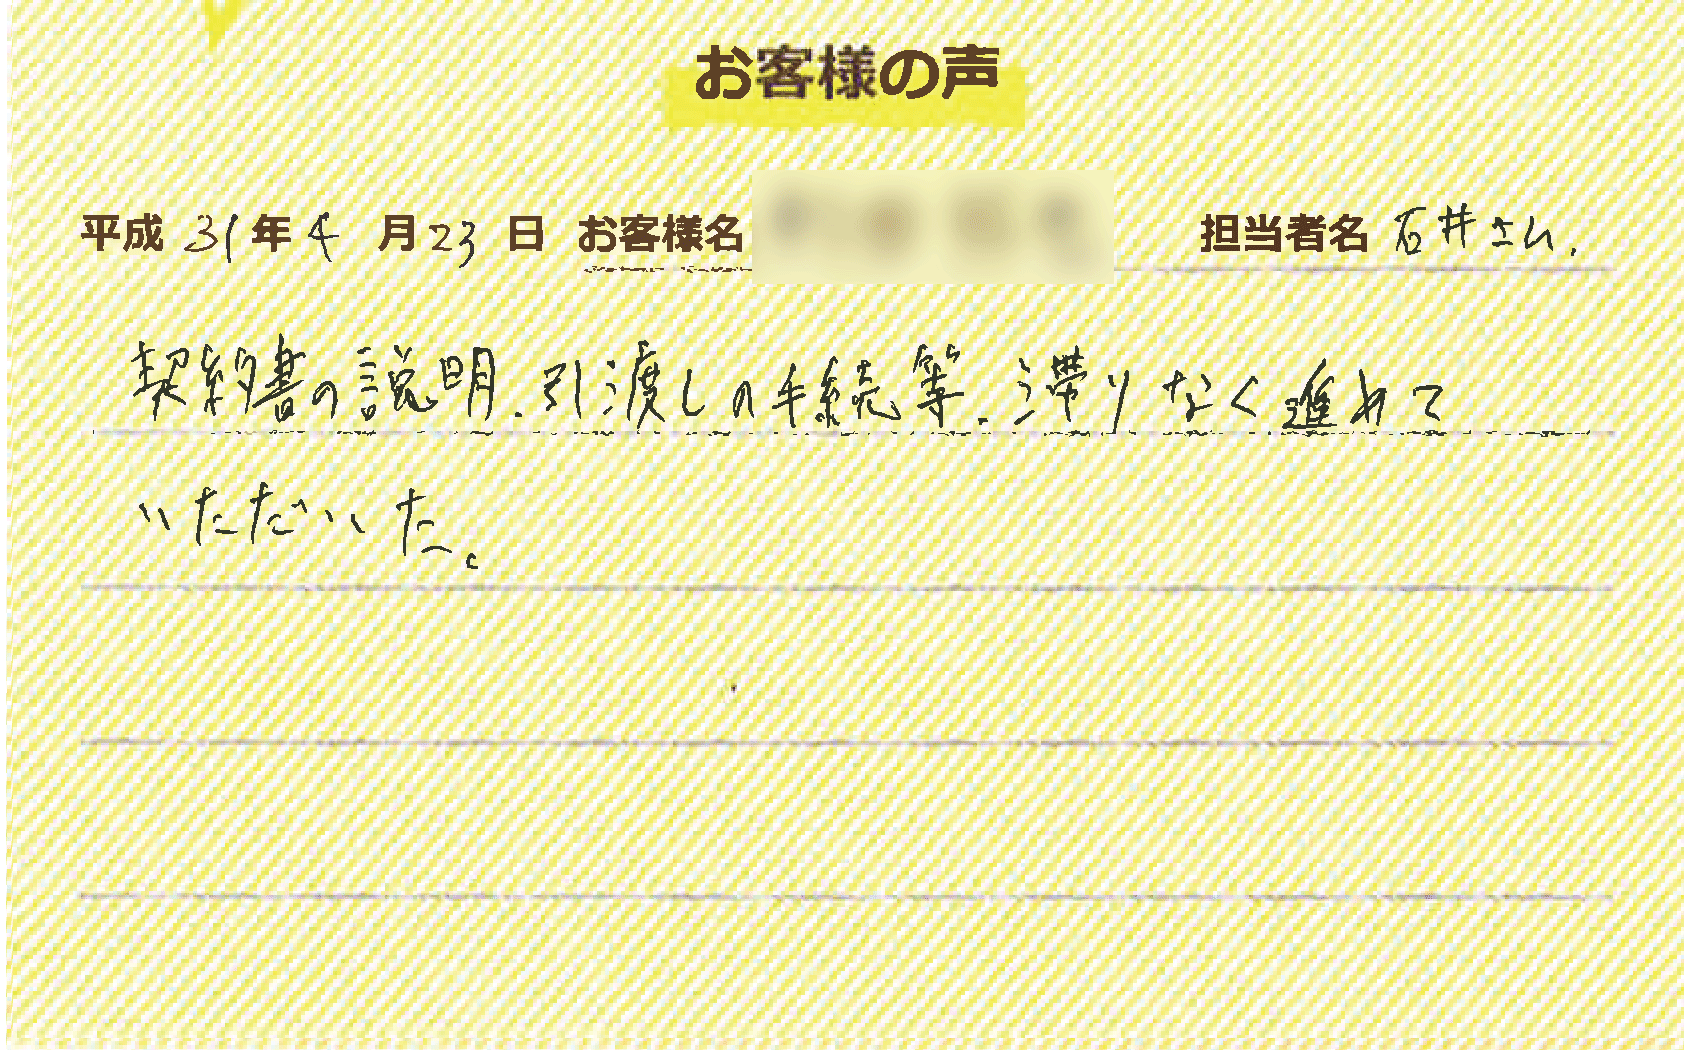 お客様の声
平成 31年 4月 23日 お客様名 担当者名 石井さん.
契約書の説明.引渡しの手続等.滞りなく進めて
いただいた。